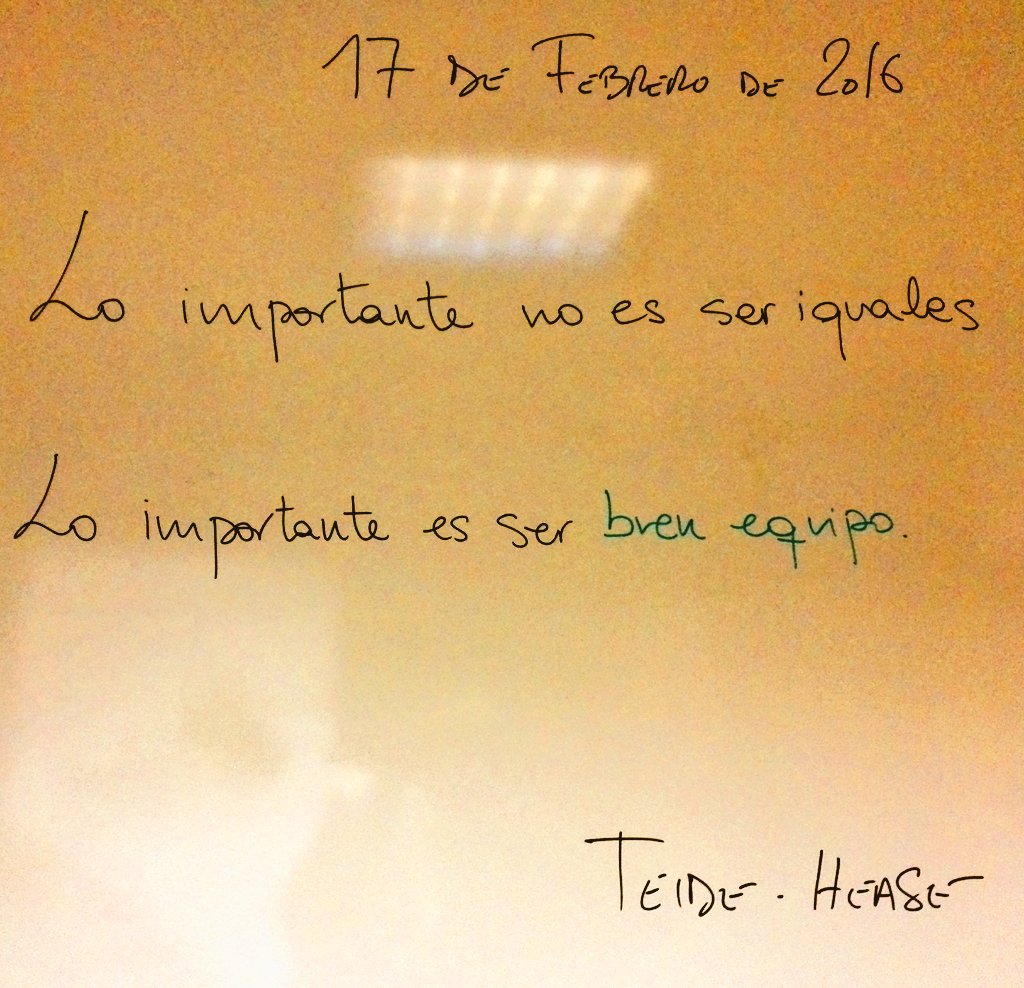 17 DE FEBRERO DE 2016
Lo importante no es ser iguales
Lo importante es ser buen equipo.
TEIDE - HEASE